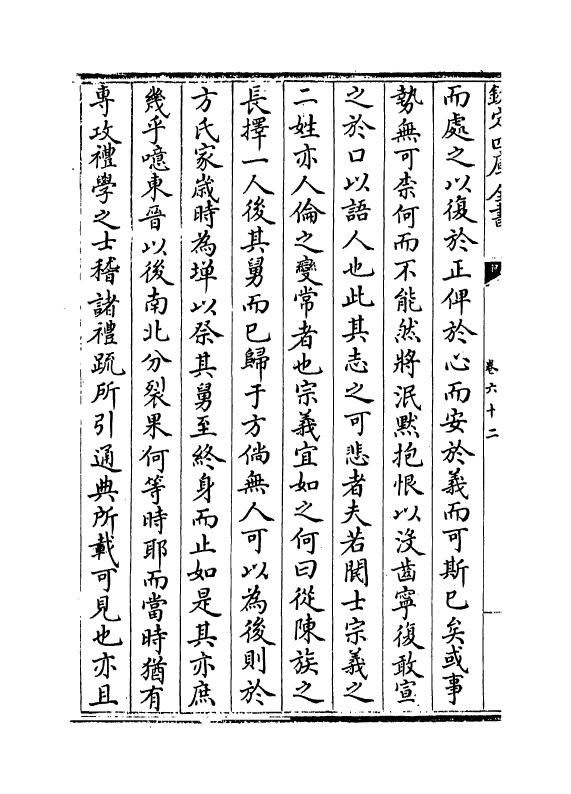 欽定四庫全書
卷六十二
而處之以復於正俾於心而安於義而可斯已矣或事
勢無可柰何而不能然將泯黙抱恨以沒齒寧復敢宣
之於口以語人也此其志之可悲者夫若閔士宗義之
二姓亦人倫之變常者也宗義宜如之何曰從陳族之
長擇一人後其舅而已歸于方倘無人可以為後則於
方氏家嵗時為墠以祭其舅至終身而止如是其亦庶
幾乎噫東晉以後南北分裂果何等時耶而當時猶有
專攻禮學之士稽諸禮疏所引通典所載可見也亦且